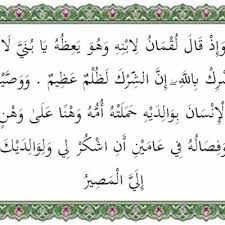 وَإِذْ قَالَ لُقْمَانُ لِابْنِهِ وَهُوَ يَعِظُهُ يَا بُنَيَّ لَا
شْرِكْ بِاللَّهِ إِنَّ الشِّرْكَ لَظُلْمٌ عَظِيمٌ . وَوَصَّيْ
الْإِنْسَانَ بِوَالِدَيْهِ حَمَلَتْهُ أُمُّهُ وَهْنًا عَلَىٰ وَهْنٍ
وَفِصَالُهُ فِي عَامَيْنِ أَنِ اشْكُرْ لِي وَلِوَالِدَيْكَ
إِلَيَّ الْمَصِيرُ